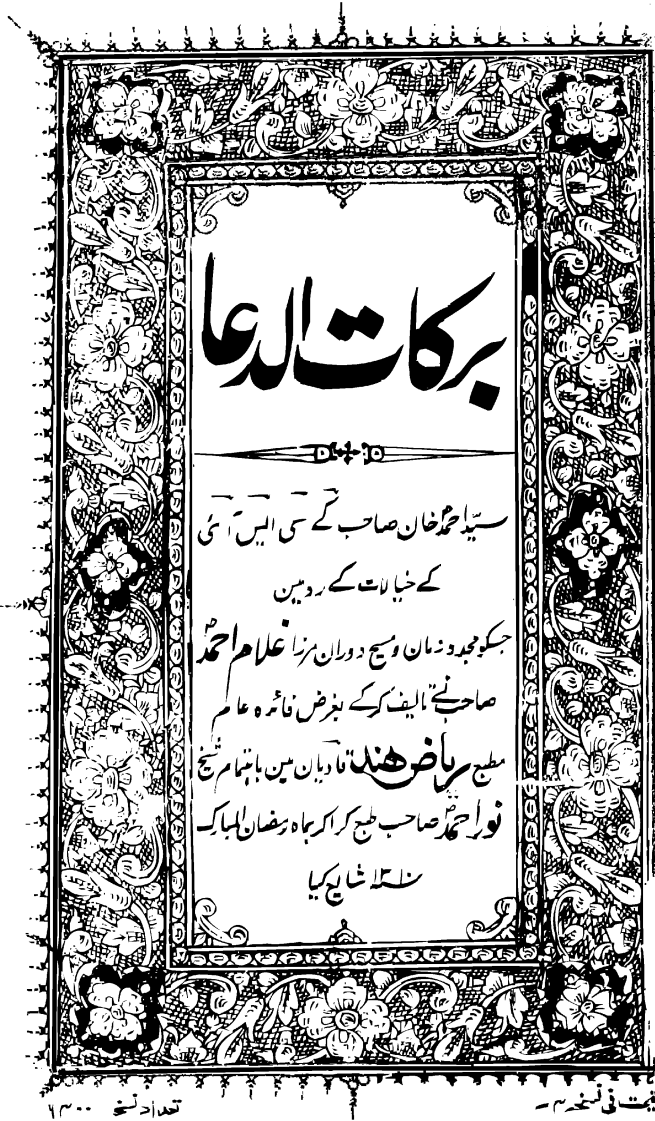 برکات الدعا
سید احمد خان صاحب کے سی ایس آئی
کے خیالات کے رد میں
جسکو مجدد زمان و مسیح دوران مرزا غلام احمد
صاحب نے تالیف کرکے بغرض فائدہ عام
مطبع ریاض ہند قادیان مین باہتمام شیخ
نور احمد صاحب طبع کراکر بماہ رمضان المبارک
۱۳۱۰ شایع کیا
تعداد نسخہ
قیمت فی نسخہ